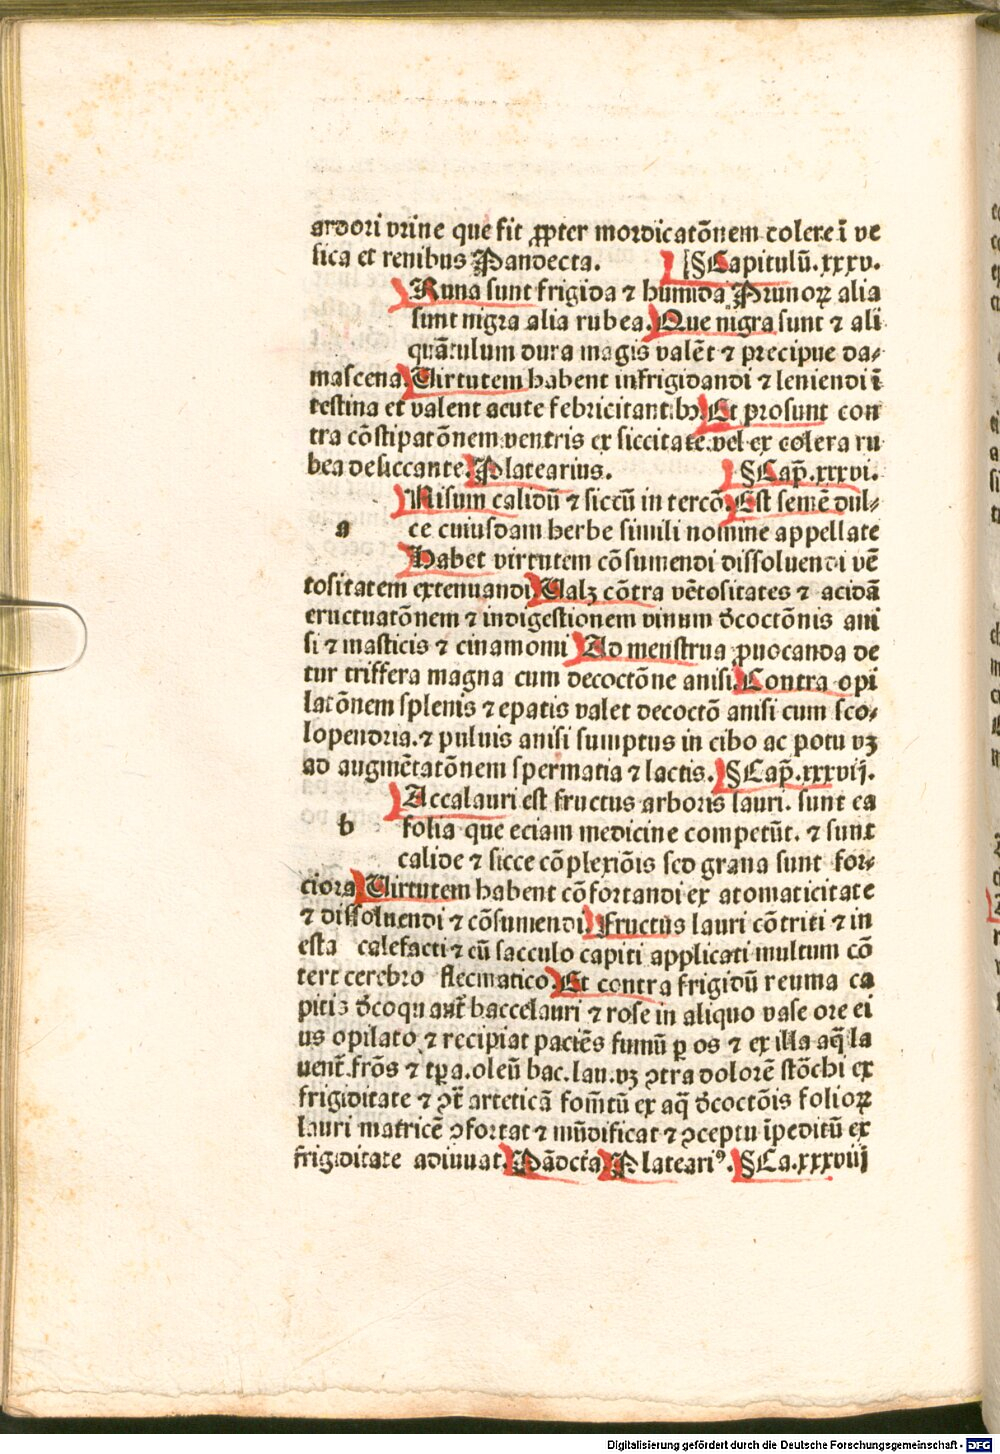 ardori vrine que fit ꝓpter mordicatōnem colere ī ve
sica et renibus Pandecta. §Capitulū.xxxv.
Runa sunt frigida ⁊ humida Prunoꝝ alia
sunt nigra alia rubea. Que nigra sunt ⁊ ali
quātulum dura magis valēt ⁊ precipue da⸗
mascena. Virtutem habent infrigidandi ⁊ leniendi ī
testina et valent acute febricitantibꝫ. Et prosunt con
tra cōstipatōnem ventris ex siccitate.vel ex colera ru
bea desiccante. Platearius. §Cap̄.xxxvi.
Nisum calidū ⁊ siccū in tercō. Est semē dul⸗
a ce cuiusdam herbe simili nomine appellate
Habet virtutem cōsumendi dissoluendi vē
tositatem extenuandi Valꝫ cōtra vētositates ⁊ acidā
eructuatōnem ⁊ indigestionem vinum dcoctōnis ani
si ⁊ masticis ⁊ cinamomi Ad menstrua ꝓuocanda de
tur triffera magna cum decoctōne anisi. Contra opi
latōnem splenis ⁊ epatis valet decoctō anisi cum sco⸗
lopendria.⁊ puluis anisi sumptus in cibo ac potu vꝫ
ad augmētatōnem spermatia ⁊ lactis. §Cap̄.xxxvij.
Accalauri est fructus arboris lauri. sunt ea
b folia que eciam medicine competūt. ⁊ sunt
calide ⁊ sicce cōplexiōis sed grana sunt for⸗
ciora Virtutem habent cōfortandi ex atomaticitate
⁊ dissoluendi ⁊ cōsumendi. Fructus lauri cōtriti ⁊ in
esta calefacti ⁊ cū sacculo capiti applicati multum cō
fert cerebro flecmatico. Et contra frigidū reuma ca
pitis dcoquāt baccelauri ⁊ rose in aliquo vase ore ei
us opilato ⁊ recipiat paciēs fumū p os ⁊ ex illa aq̄ la
uent̄.frōs ⁊ tp̄a.oleū bac.lau.vꝫ ꝯtra dolorē stōchi ex
frigiditate ⁊ ꝯt̄ arteticā fom̄tū ex aq̄ dcoctōis folioꝝ
lauri matricē ꝯfortat ⁊ mūdificat ⁊ ꝯceptu īpeditū ex
frigiditate adiuuat. Pādcta Plateariꝰ. §Ca.xxxviij
Digitalisierung gefördert durch die Deutsche Forschungsgemeinschaft - DFG